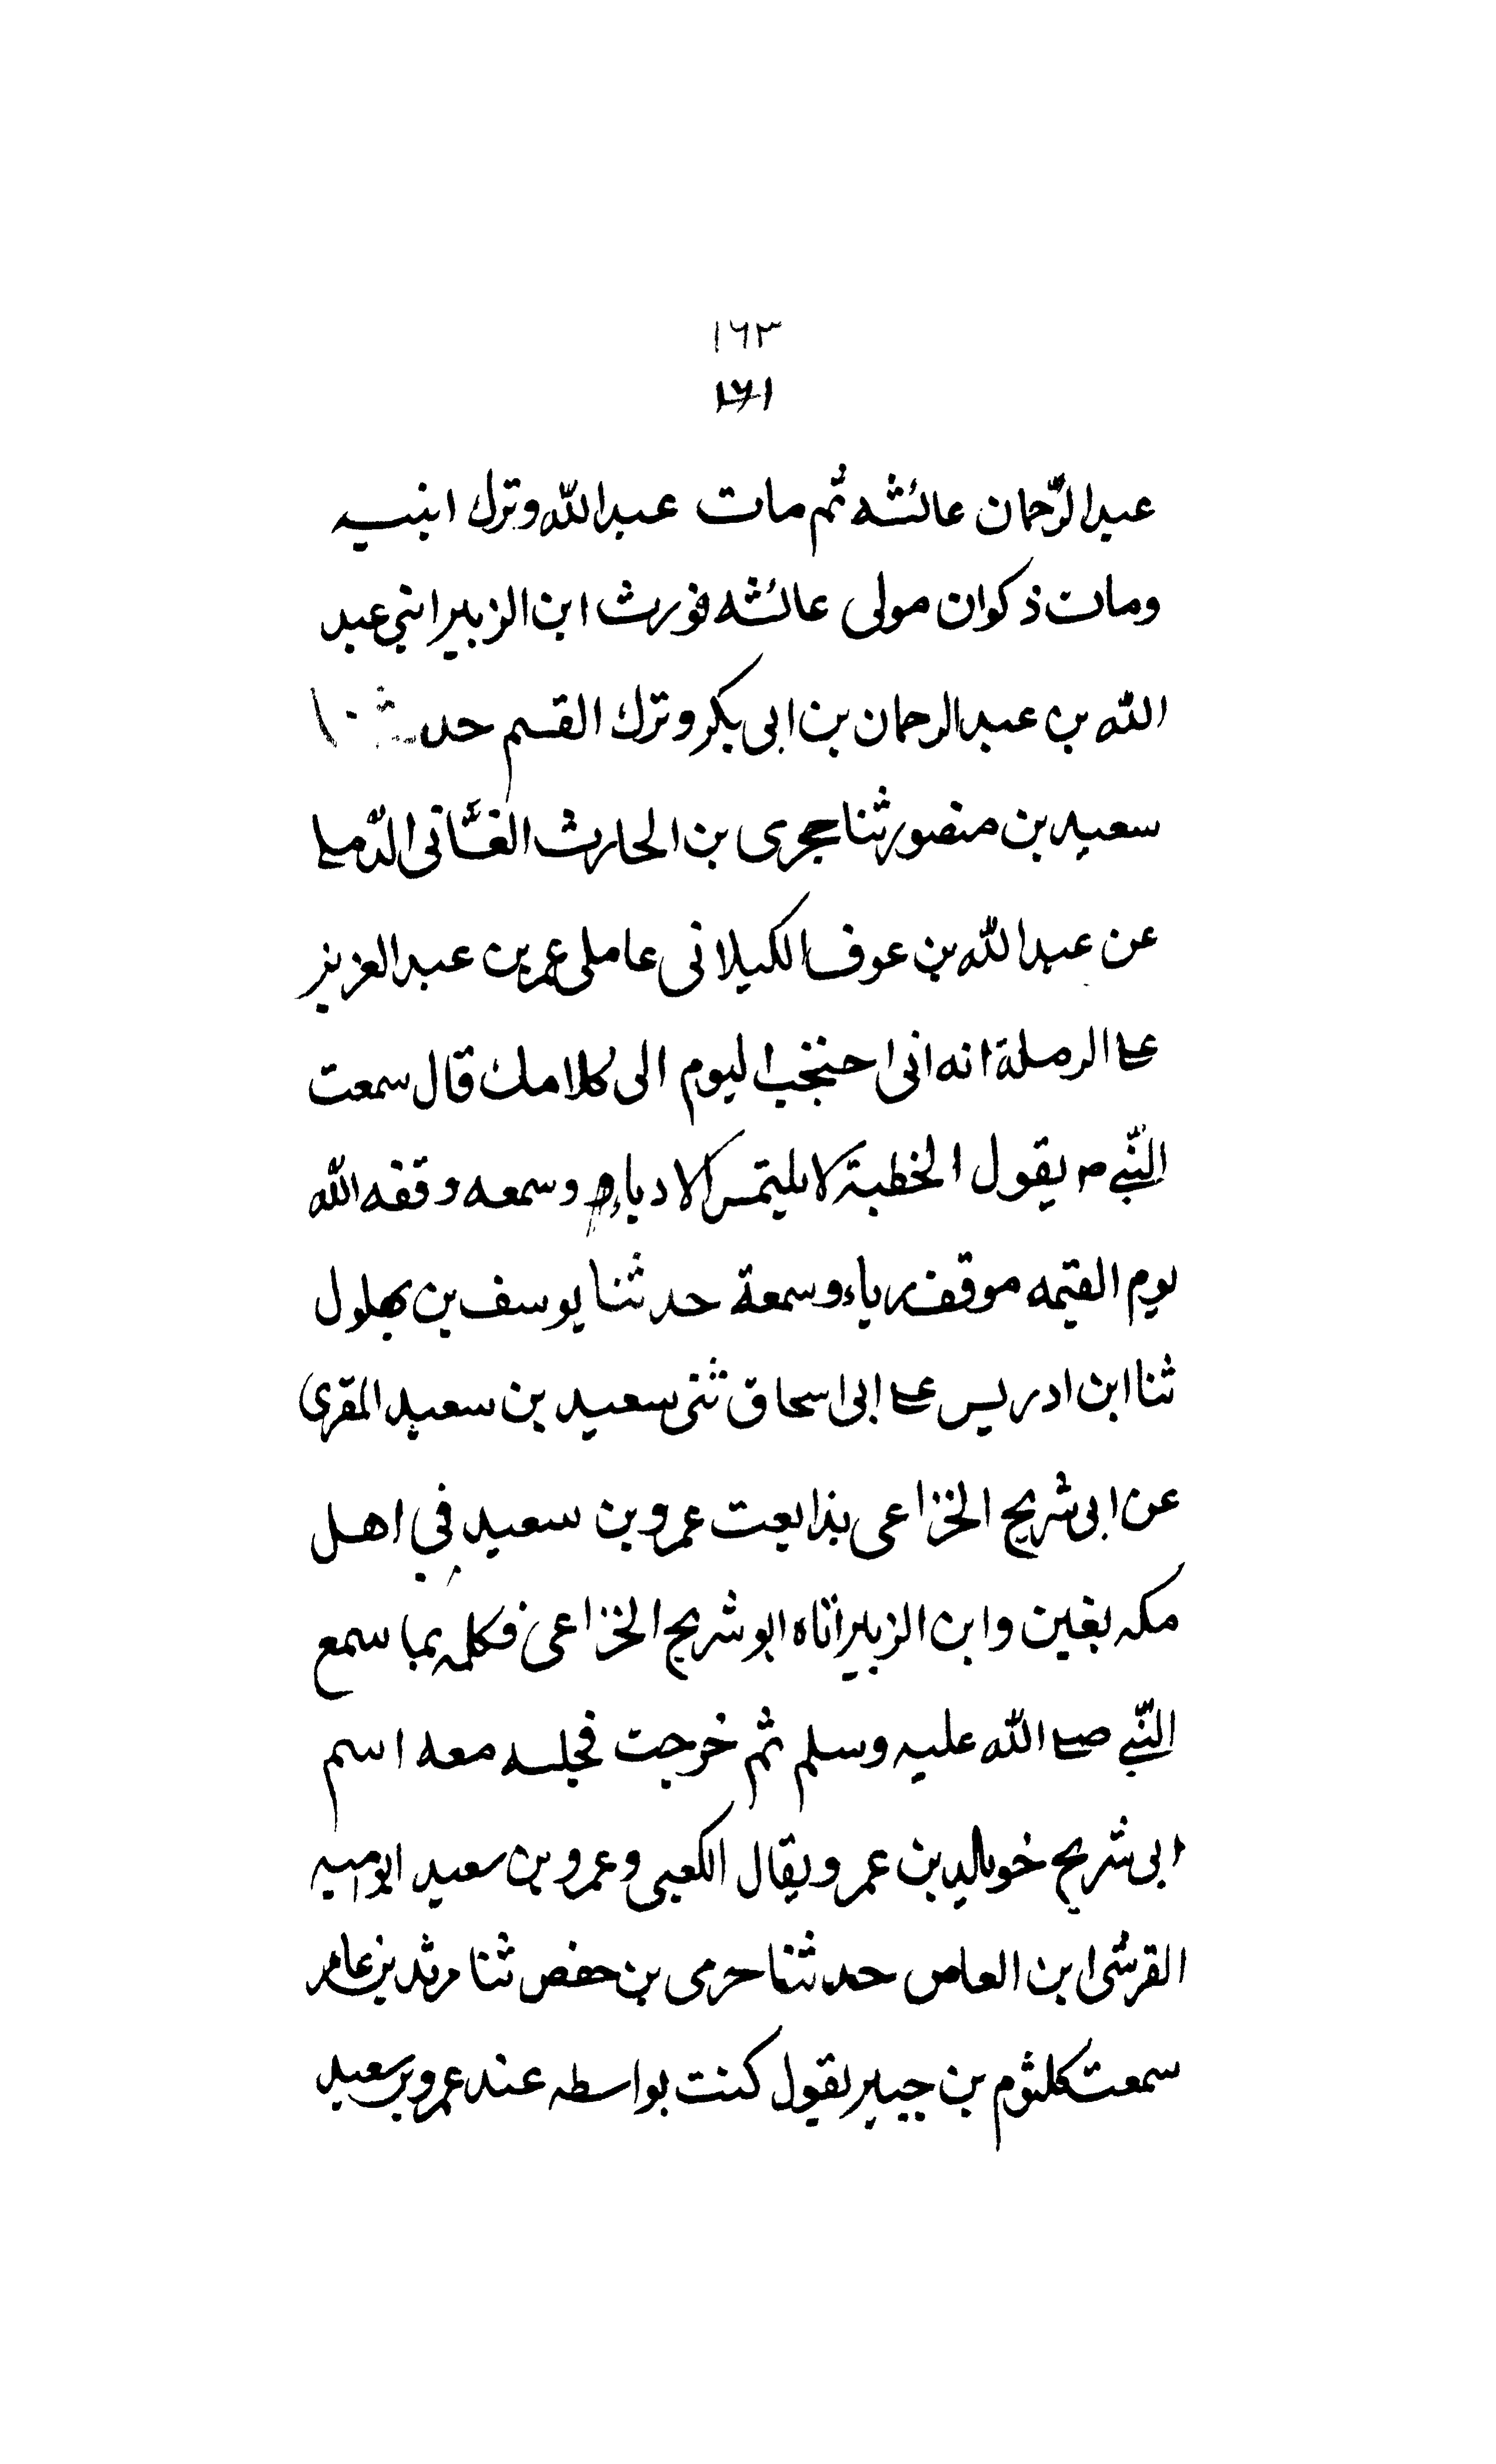 ١٦٣
١٦١
عبد الرّحمان عائشه ثم مات عبد اللّه وترك ابنيه
ومات ذكوان مولى عائشه فورث ابن الزبير ابني عبد
اللّه بن عبد الرحمان بن ابى بكر وترك القسم حدثنا
سعيد بن منصور ثنا حجرى بن الحارث الغسّانى الرّملے
عن عبد اللّه بن عوف الكيلانى عاملى عمر بن عبد العزيز
علے الرملة انه انى احتجب اليوم الى كلامك قال سمعت
النّبے ص يقول الخطبة لا يلتمس الا دياء وسمعه وقفه اللّه
يوم القيمه موقف رياء وسمعة حدثنا يوسف بن بهلول
ثنا ابن ادريس علے ابى اسحاق ثنى سعيد بن سعيد المقرى
عن ابى شريح الخزاعى بذا بعت عمرو بن سعيد في اهل
مكه بغين وابن الزبير اتاه ابو شريح الخزاعى فكلمه بما سمع
النّبے صلے اللّه عليه وسلم ثم خرجت فجلسه معه اسم
ابى شريح خويلد بن عمر ويقال الكعبى وعمرو بن سعيد ابو اميه
القرشى ابن العاص حدثنا حرمى بن حفص ثنا مرثد بن عامر
سمعت كلثوم بن جبير يقول كنت بواسطه عند عمرو بن سعيد